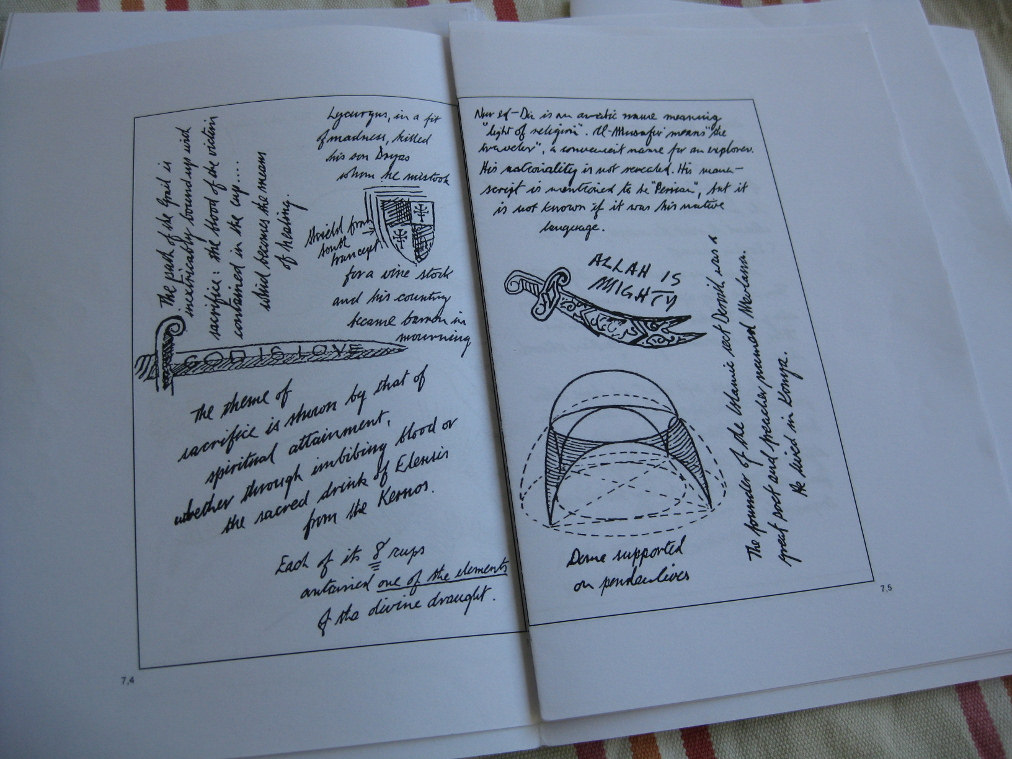 The path of the Grail is
inextricably bound up with
sacrifice: the blood of the victim
contained in the cup....
which becomes the means
of healing.
Lycurgus, in a fit
of madness, killed
his son Dryas
whom he mistook
Shield from
south
transept
for a vine stock
and his country
became barren in
mourning
GOD IS LOVE
The theme of
sacrifice is shown by that of
spiritual attainment,
whether through imbibing blood or
the sacred drink of Eleusis
from the Kernos.
Each of its 8 cups
contained one of the elements
of the divine draught.
7,4
Nur ed-Din is an arabic name meaning
"light of religion". Al-Musafir means "the
traveler", a convenient name for an explorer.
His nationality is not revealed. His manu-
script is mentioned to be "Persian", but it
is not known if it was his native
language.
ALLAH IS
MIGHTY
Dome supported
on pendentives
The founder of the Islamic sect Dervish was a
great poet and preacher named Mevlana.
He lived in Konya.
7,5